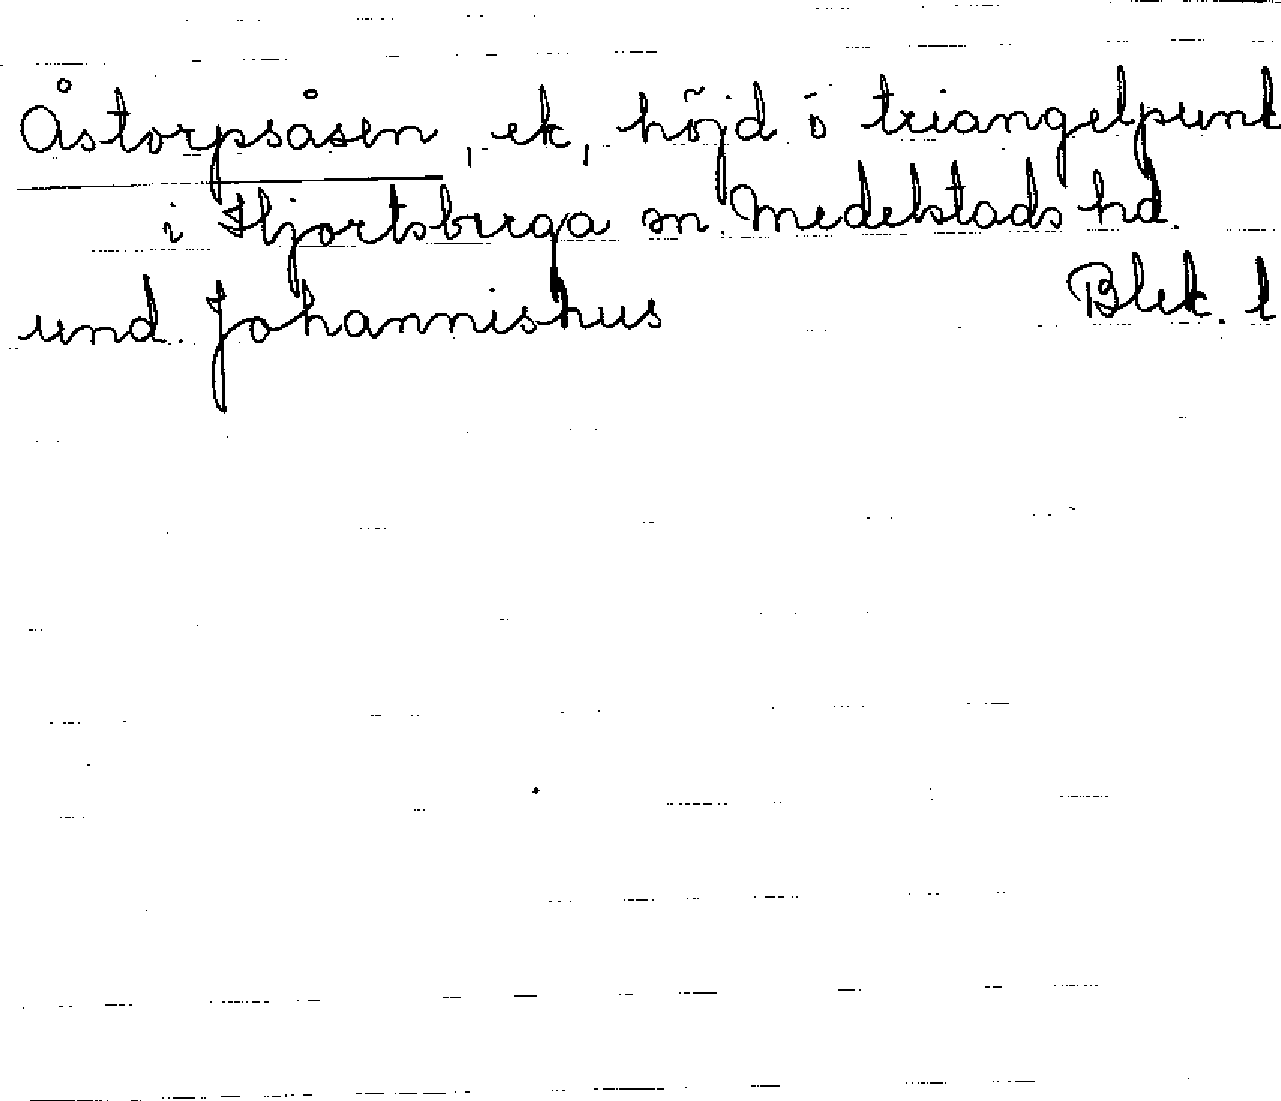 Åstorpsåsen, ek, höjd ö triangelpunkt
i Hjortsberga sn. Medelstads hd.
und. Johannishus Blek. l